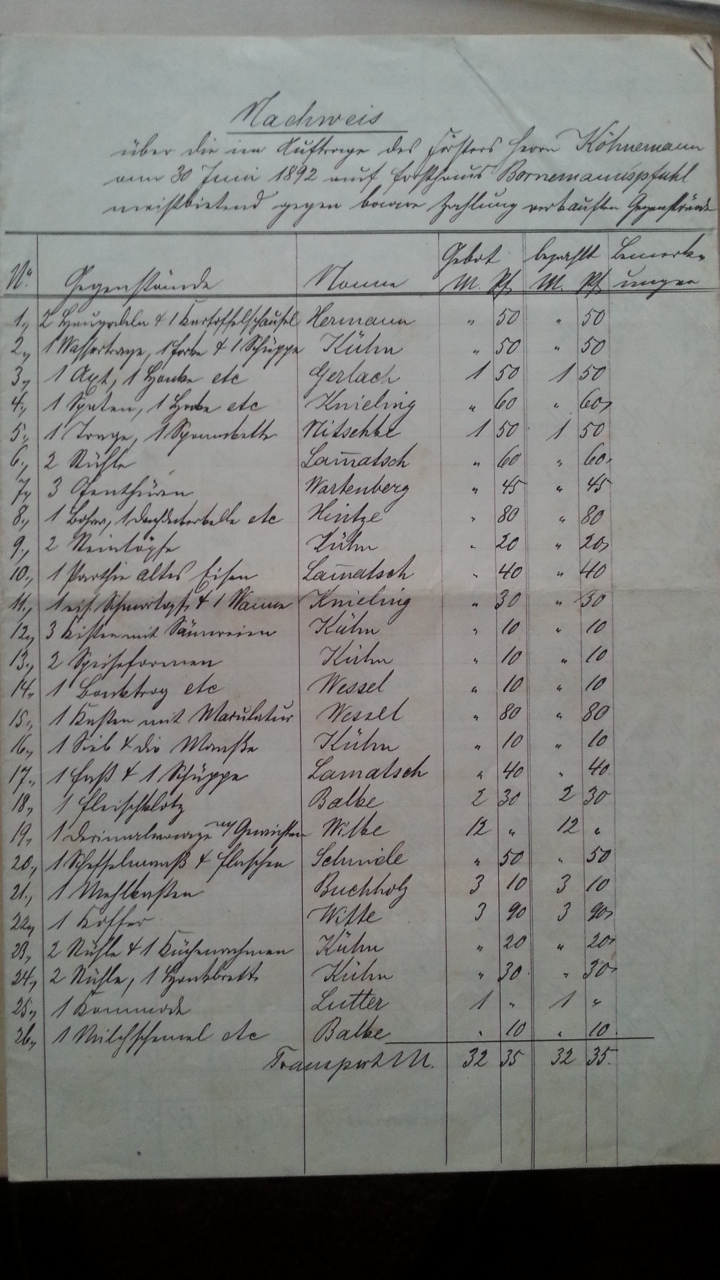 Nachweis
über die im Auftrage des Försters Herrn Köhnemann
am 30 Juni 1892 auf Forsthaus Bornemannspfuhl
meistbietend gegen baare Zahlung verkauften Gegenstände
No. Gegenstände Name Gebot M. Pf. bezahlt M. Pf. Bemerkungen
1., 2 & 1 Kartoffelschaufel Hermann " 50 " 50
2., 1 Wassertrage, 1 Forke & 1 Schüppe Kühn " 50 " 50
3., 1 Axt, 1 etc Gerlach 1 50 1 50
4., 1 Spaten, 1 etc Knieling " 60 " 60
5., 1 Trage, 1 Nitschke 1 50 1 50
6., 2 Stühle Lam̄atsch " 60 " 60
7., 3 Ofenthüren Wartenberg " 45 " 45
8., 1 etc Hintze " 80 " 80
9., 2 Steintöpfe Kühn " 20 " 20
10., 1 Parthie altes Eisen Lam̄atsch " 40 " 40
11., 1 eis. & 1 Wanne Knieling " 30 " 30
12., 3 Kisten mit Kühn " 10 " 10
13., 2 Kühn " 10 " 10
14., 1 etc Wessel " 10 " 10
15., 1 Kasten mit Makulatur Wessel " 80 " 80
16., 1 Sieb & div Kühn " 10 " 10
17., 1 Faß & 1 Schüppe Lamatsch " 40 " 40
18., 1 Fleischklotz Balke 2 30 2 30
19., 1 Decimalwaage Gewichten Witte 12 " 12 "
20., 1 Scheffelmaaß & Flaschen Schmide " 50 " 50
21., 1 Mehlkasten Buchholz 3 10 3 10
22., 1 Koffer Witte 3 90 3 90
23., 2 Stühle & 1 Küchenrahmen Kühn " 20 " 20
24., 2 Stühle, 1 Kühn " 30 " 30
25., 1 Kommode Lutter 1 " 1 "
26., 1 Milchschemel etc Balke " 10 " 10
Transport M. 32 35 32 35